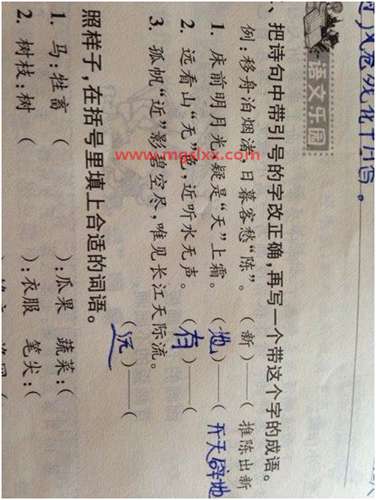 语文乐园
一、把诗句中带引号的字改正确,再写一个带这个字的成语。
例:移舟泊烟渚,日暮客愁“陈”。(新)——推陈出新
1. 床前明月光,疑是“天”上霜。(地)——(开天辟地
2. 远看山“无”色,近听水无声。(有)——(
3. 孤帆“近”影碧空尽,唯见长江天际流。(远)——(
照样子,在括号里填上合适的词语。
1. 马:牲畜 ( ):瓜果 蔬菜:(
2. 树枝:树 ( ):衣服 笔尖:(
www.mgxlxx.com